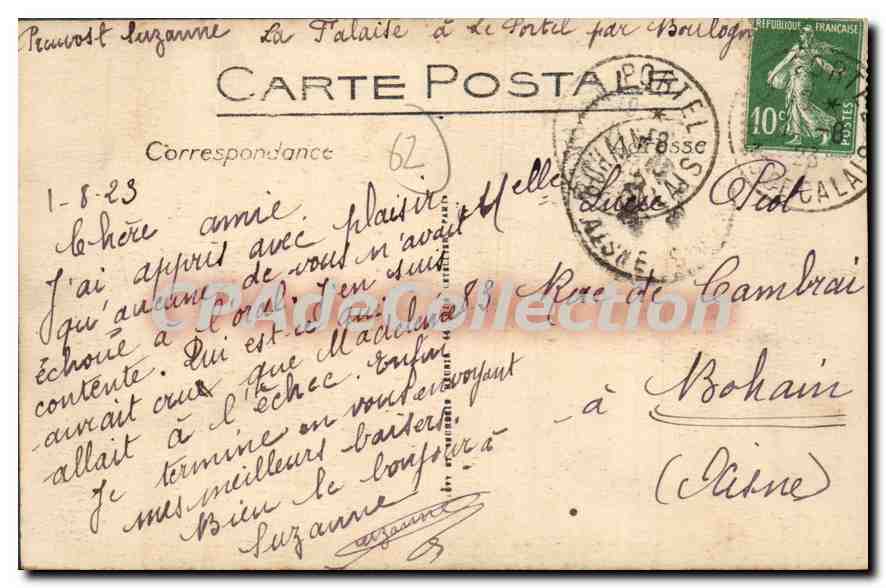 Prouvost Suzanne La Falaise à Le Portel par Boulogne
CARTE POSTALE
Correspondance
Adresse
62
RÉPUBLIQUE FRANÇAISE
10c
POSTES
PORTEL
PAS-DE-CALAIS
BOHAIN
AISNE
1-8-23
Chère amie
J'ai appris avec plaisir
qu'aucune de vous n'avait
échoué à l'oral. J'en suis
contente. Qui est-ce qui
aurait cru que Madeleine
allait à l'échec. Enfin
Je termine en vous envoyant
mes meilleurs baisers
Bien le bonjour à
Suzanne
Suzanne
Melle Lucie Piot
83 Rue de Cambrai
à Bohain
(Aisne)
CPAdeCollection